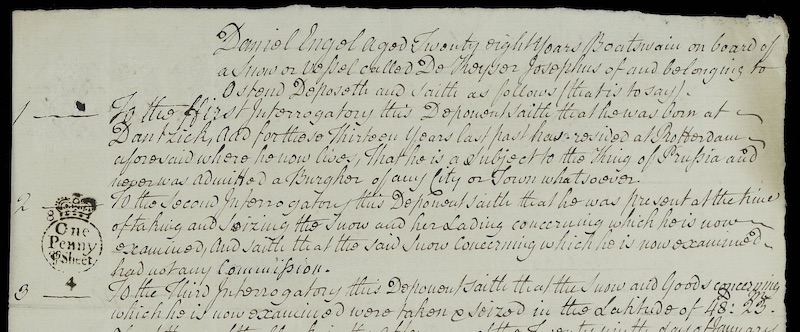 Daniel Engel Aged Twenty eight Years Boatswain on board of
a Snow or Vessel called De Keyser Josephus of and belonging to
Ostend Deposeth and Saith as follows (that is to say).
1 To the ffirst Interrogatory this Deponent saith that he was born at
Dantzick, And for these Thirteen Years last past has resided at Rotterdam
aforesaid where he now lives, That he is a Subject to the King of Prussia and
never was admitted a Burgher of any City or Town whatsoever.
2 To the Second Interrogatory this Deponent saith that he was present at the time
of taking and seizing the Snow and her Lading concerning which he is now
examined, And saith that the said Snow concerning which he is now examined
had not any Commission.
8
One
Penny
Sheet
4
3 To the Third Interrogatory this Deponent saith that the Snow and Goods concerning
which he is now examined were taken & seized in the Latitude of 48: 23.